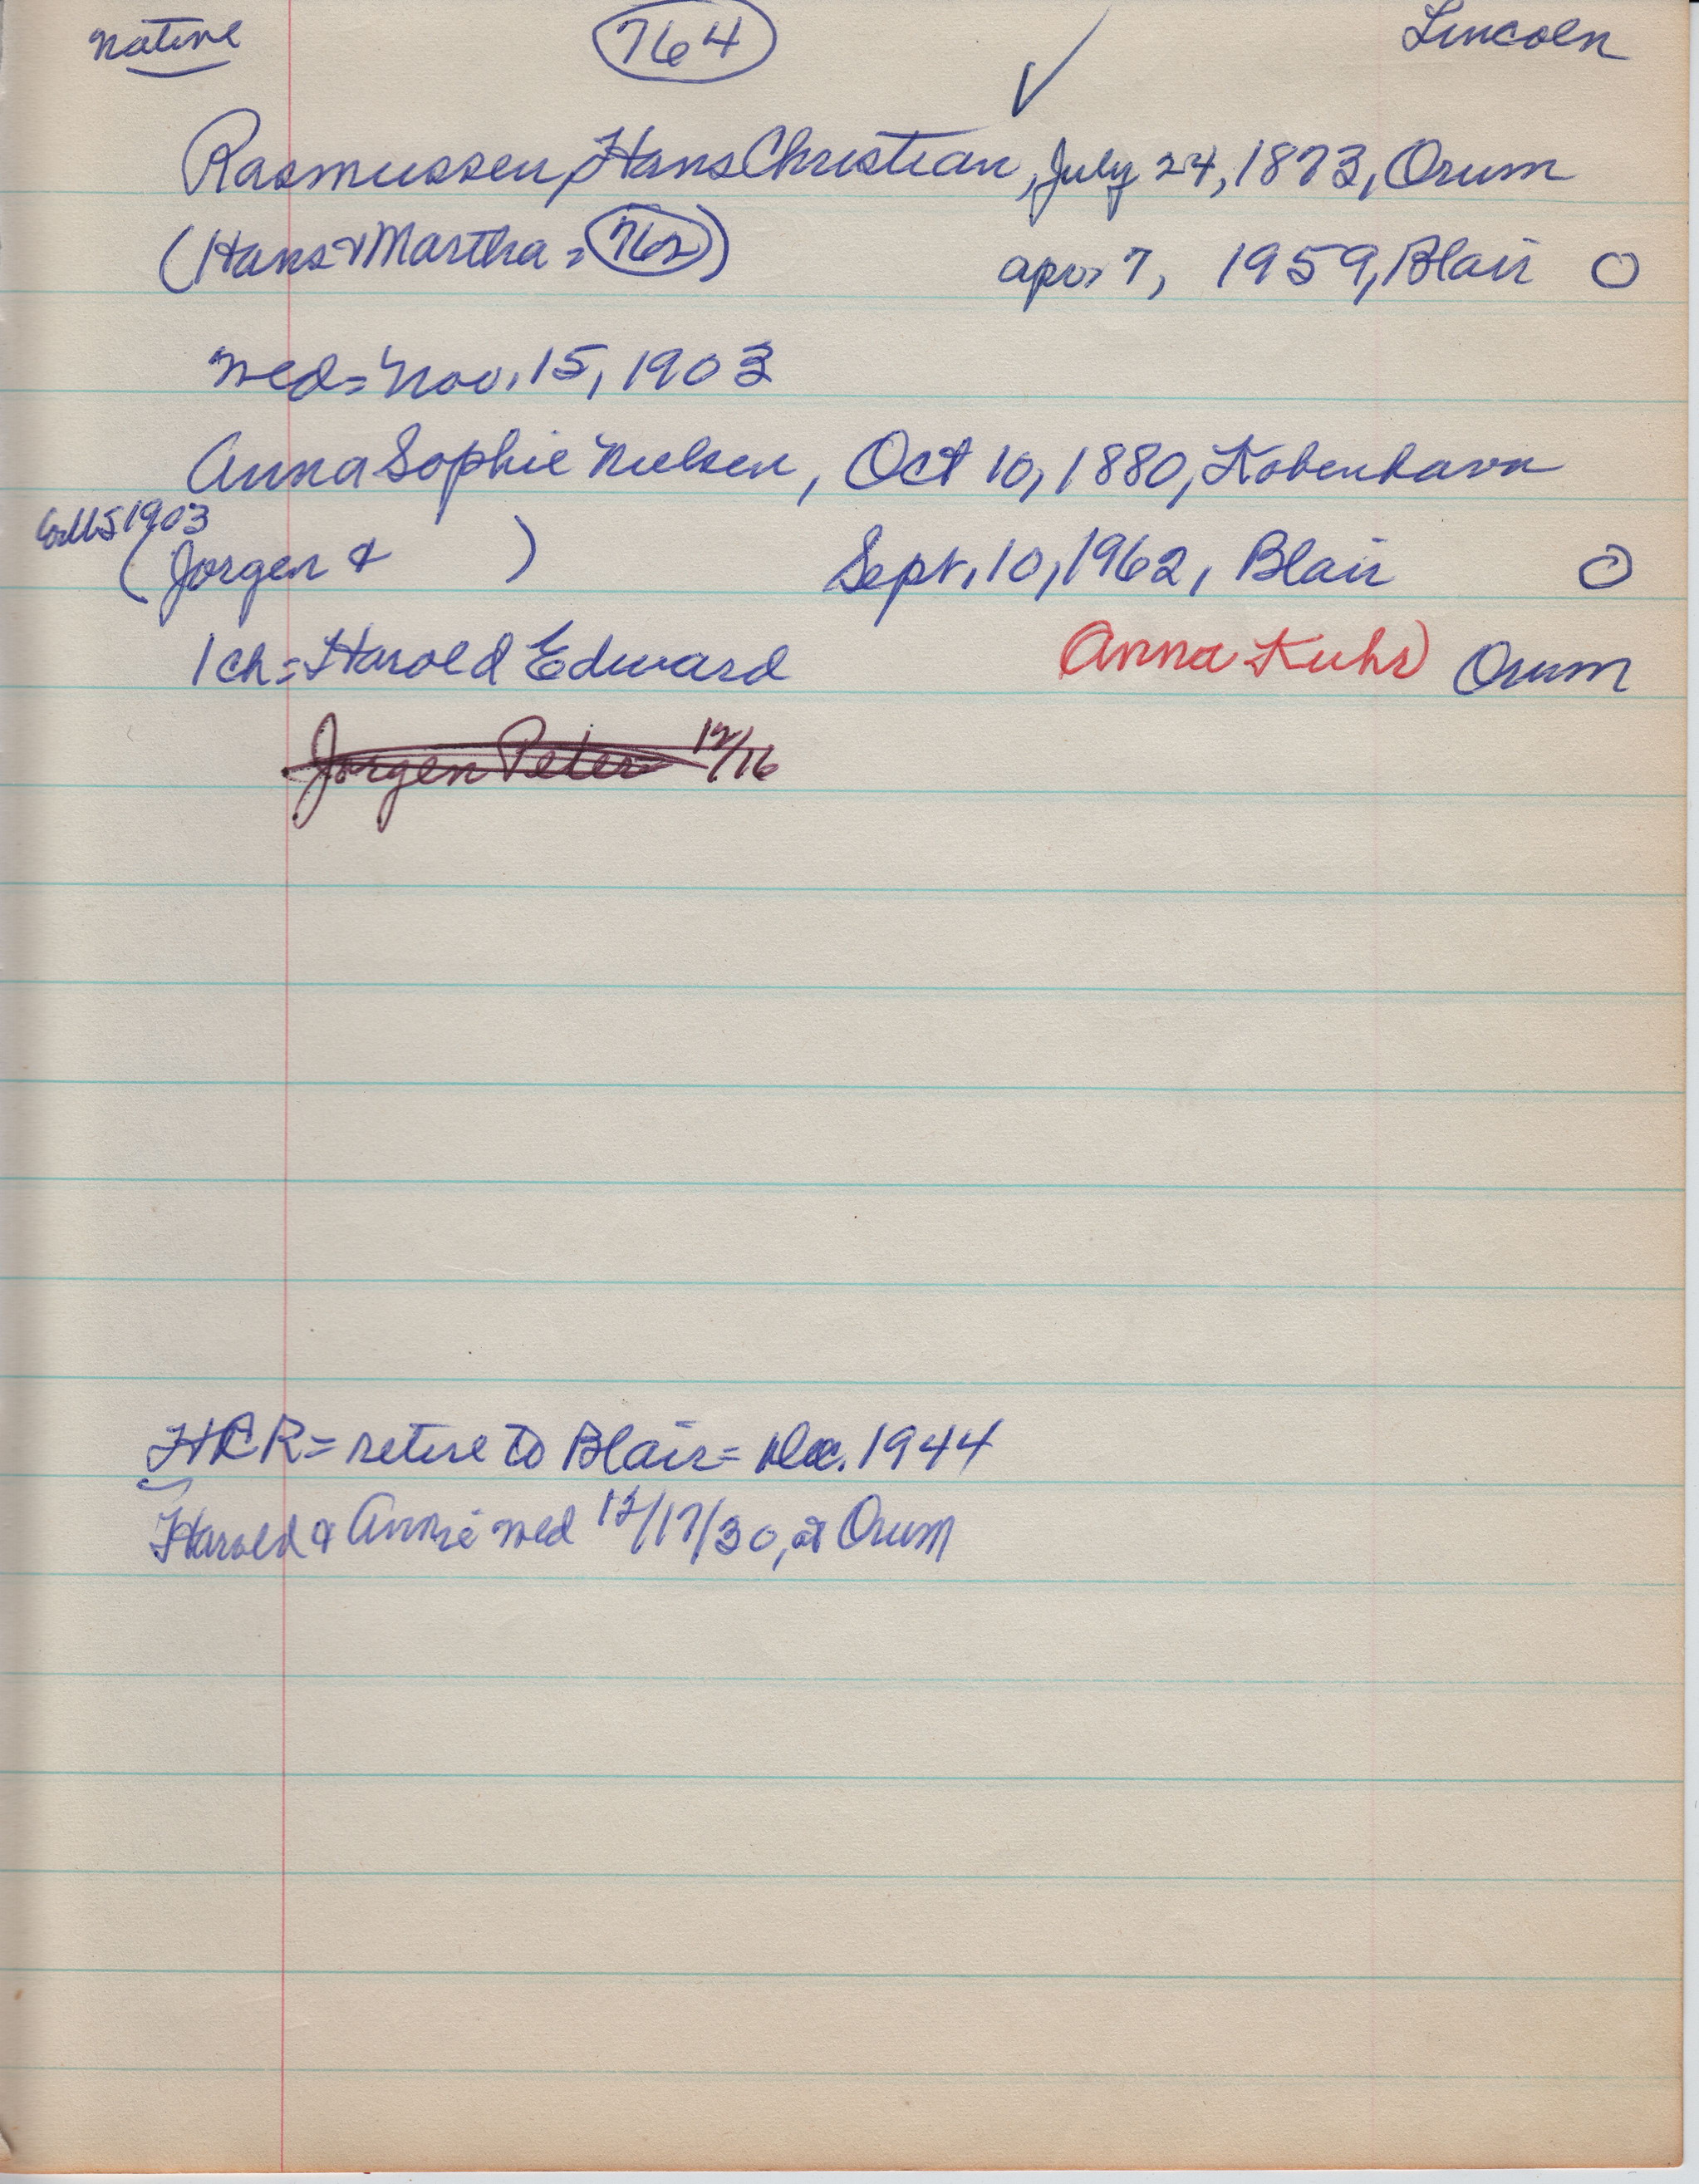 Native 764 ✓ Lincoln
Rasmussen, Hans Christian, July 24, 1873, Orum
(Hans & Martha = 762)
Apr. 7, 1959, Blair O
Wed = Nov. 15, 1903
Anna Sophie Nielsen, Oct 10, 1880, Kobenhavn
1903
(Jorgen & )
Sept. 10, 1962, Blair O
1 ch = Harold Edward Anna Kuhr Orum
Jorgen Peter 12/16
HCR = retire to Blair = Dec. 1944
Harold & Annie wed 12/17/30, at Orum